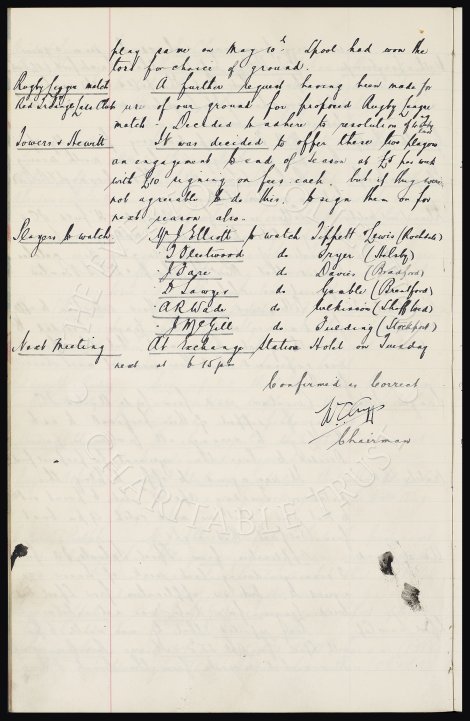 play same on May 10th. Lpool had won the
toss for choice of ground.
Rugby League match A further request having been made for
Red Triangle Club use of our ground for proposed Rugby League
match - Decided to adhere to resolution of
Towers & Hewitt It was decided to offer these two players
an engagement to end of season at £5 per week
with £10 signing on fees each. but if they were
not agreeable to do this. to sign them on for
next season also.
Players to watch Mr J Elliott to watch Tippett & Lewis (Rochdale)
T Fleetwood do Fryer (Helsby)
J Tare do Davies (Bradford)
D Sawyer do Gamble (Brentford)
A R Wade do Wilkinson (Sheff Wed)
J McGill do (Stockport)
Next Meeting At Exchange Station Hotel on Tuesday
next at 6 15 pm
Confirmed as Correct
Chairman
CHARITABLE TRUST